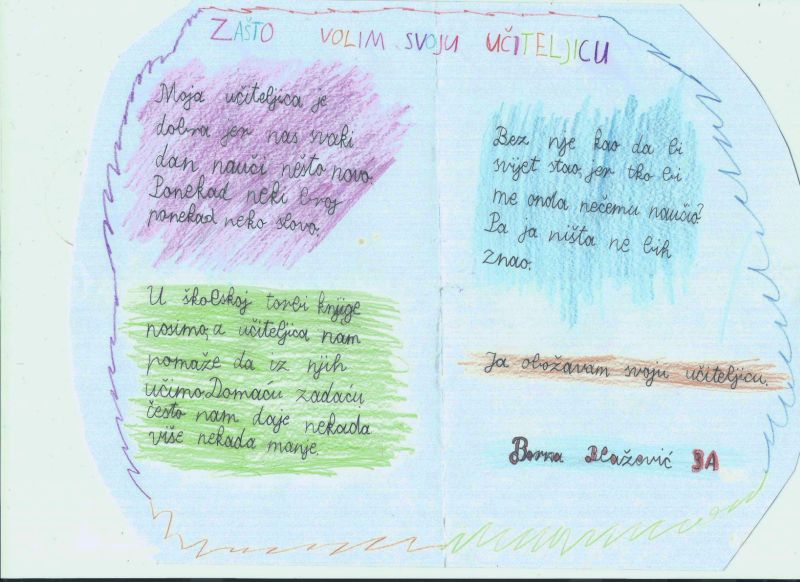 ZAŠTO VOLIM SVOJU UČITELJICU
Moja učiteljica je
dobra jer nas svaki
dan nauči nešto novo.
Ponekad neki broj
ponekad neko slovo.
U školskoj torbi knjige
nosimo, a učiteljica nam
pomaže da iz njih
učimo. Domaću zadaću
često nam daje nekada
više nekada manje.
Bez nje kao da bi
svijet stao, jer tko bi
me onda nečemu naučio?
Pa ja ništa ne bih
znao.
Ja obožavam svoju učiteljicu.
Borna Blažević 3A